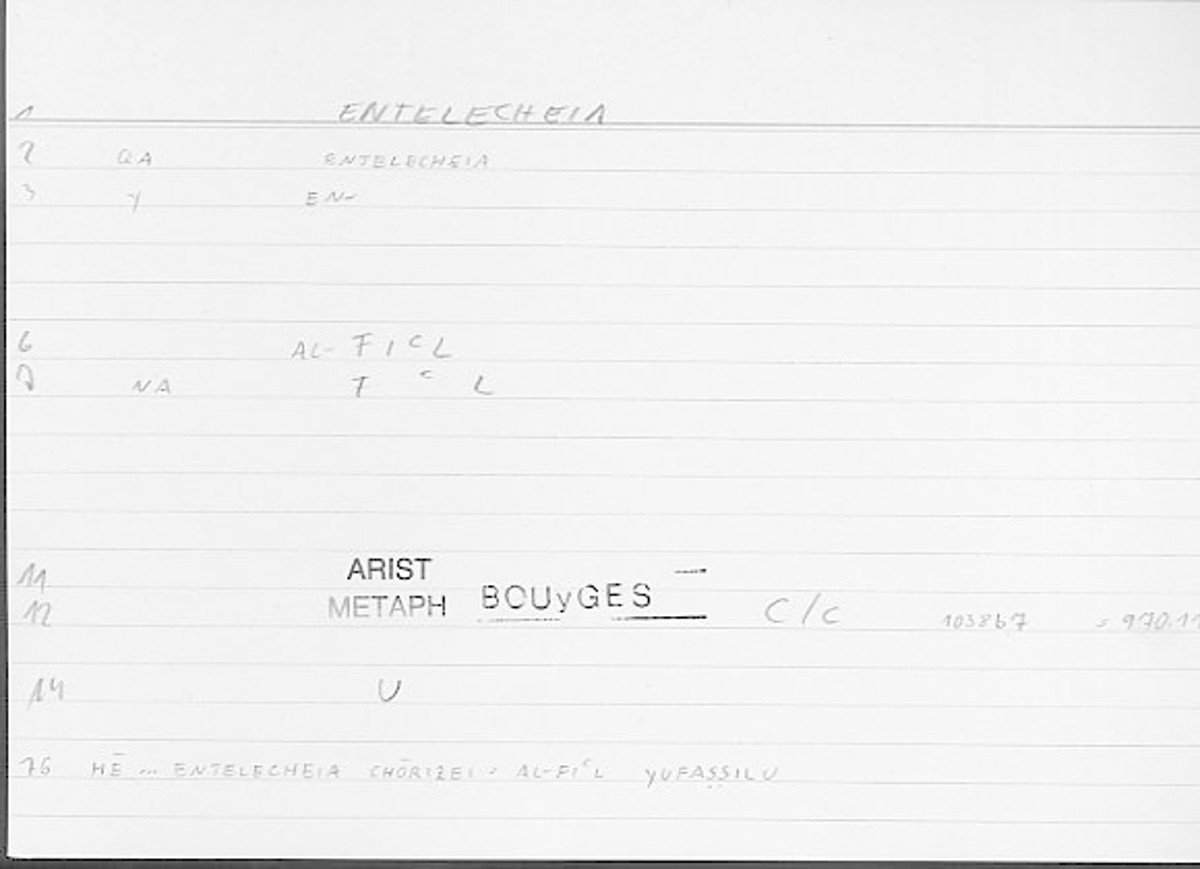 1 ENTELECHEIA
2 QA ENTELECHEIA
3 Y EN-
6 AL- F I ᶜ L
7 NA F ᶜ L
11 ARIST
12 METAPH BOUyGES C/c 1038b7 = 970.11
14 U
16 HĒ ... ENTELECHEIA CHŌRIZEI = AL-FIᶜL YUFAṢṢILU